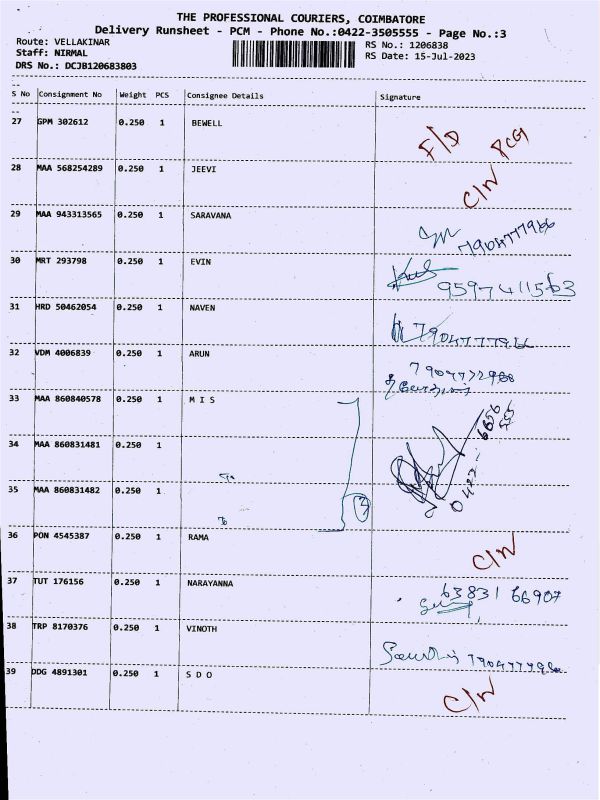 THE PROFESSIONAL COURIERS, COIMBATORE
Delivery Runsheet - PCM - Phone No.:0422-3505555 - Page No.:3
Route: VELLAKINAR
RS No.: 1206838
Staff: NIRMAL
RS Date: 15-Jul-2023
DRS No.: DCJB120683803
S No Consignment No Weight PCS Consignee Details Signature
27 GPM 302612 0.250 1 BEWELL F/D
28 MAA 568254289 0.250 1 JEEVI C/N
29 MAA 943313565 0.250 1 SARAVANA 7904777966
30 MRT 293798 0.250 1 EVIN 9597411563
31 HRD 50462054 0.250 1 NAVEN
32 VDM 4006839 0.250 1 ARUN
33 MAA 860840578 0.250 1 M I S
34 MAA 860831481 0.250 1
35 MAA 860831482 0.250 1
36 PON 4545387 0.250 1 RAMA C/N
37 TUT 176156 0.250 1 NARAYANNA 63831 66907
38 TRP 8170376 0.250 1 VINOTH
39 DDG 4891301 0.250 1 S D O C/N